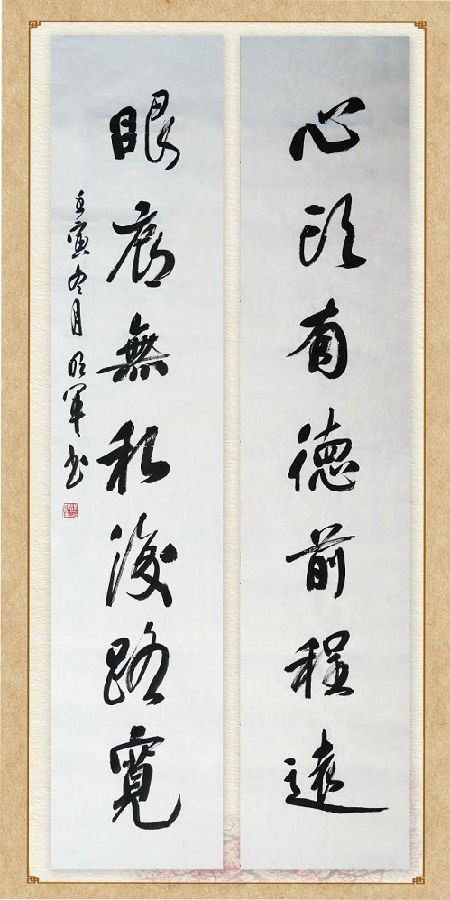 心頭有德前程遠
眼底無私後路寬
壬寅冬月明軍书